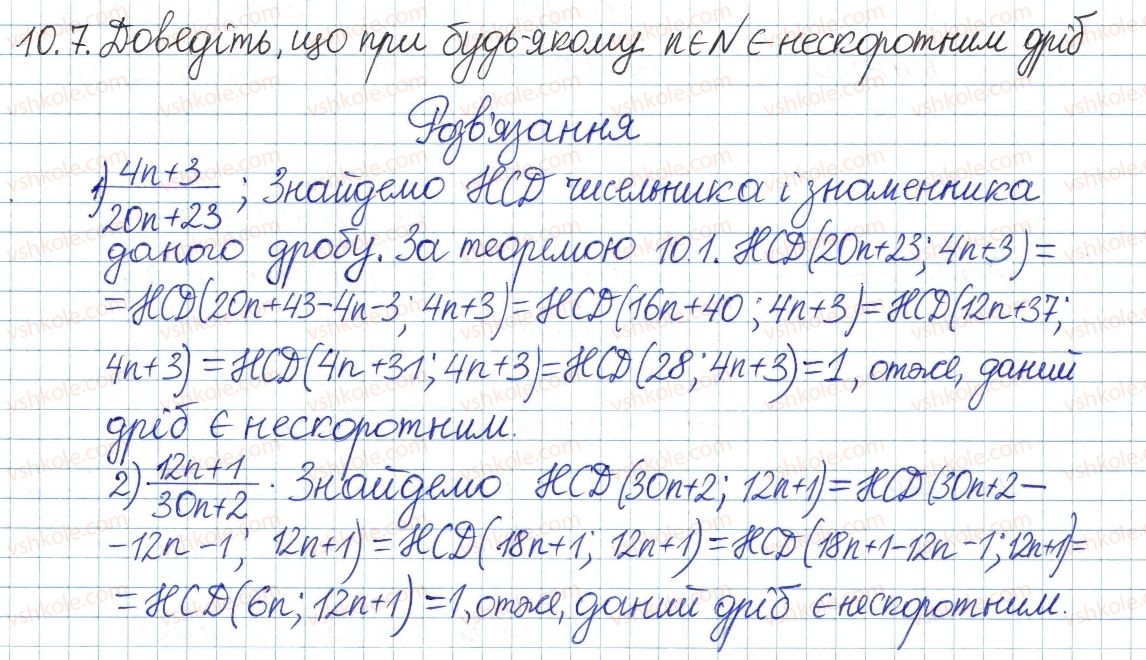 10.7. Доведіть, що при будь-якому n∈N є нескоротним дріб
Розв'язання
1) 4n+3/20n+23; Знайдемо НСД чисельника і знаменника
даного дробу. За теоремою 10.1. НСД(20n+23; 4n+3)=
=НСД(20n+43-4n-3; 4n+3)=НСД(16n+40; 4n+3)=НСД(12n+37;
4n+3)=НСД(4n+31; 4n+3)=НСД(28; 4n+3)=1, отже, даний
дріб є нескоротним.
2) 12n+1/30n+2. Знайдемо НСД(30n+2; 12n+1)=НСД(30n+2-
-12n-1; 12n+1)=НСД(18n+1; 12n+1)=НСД(18n+1-12n-1; 12n+1)=
=НСД(6n; 12n+1)=1, отже, даний дріб є нескоротним.